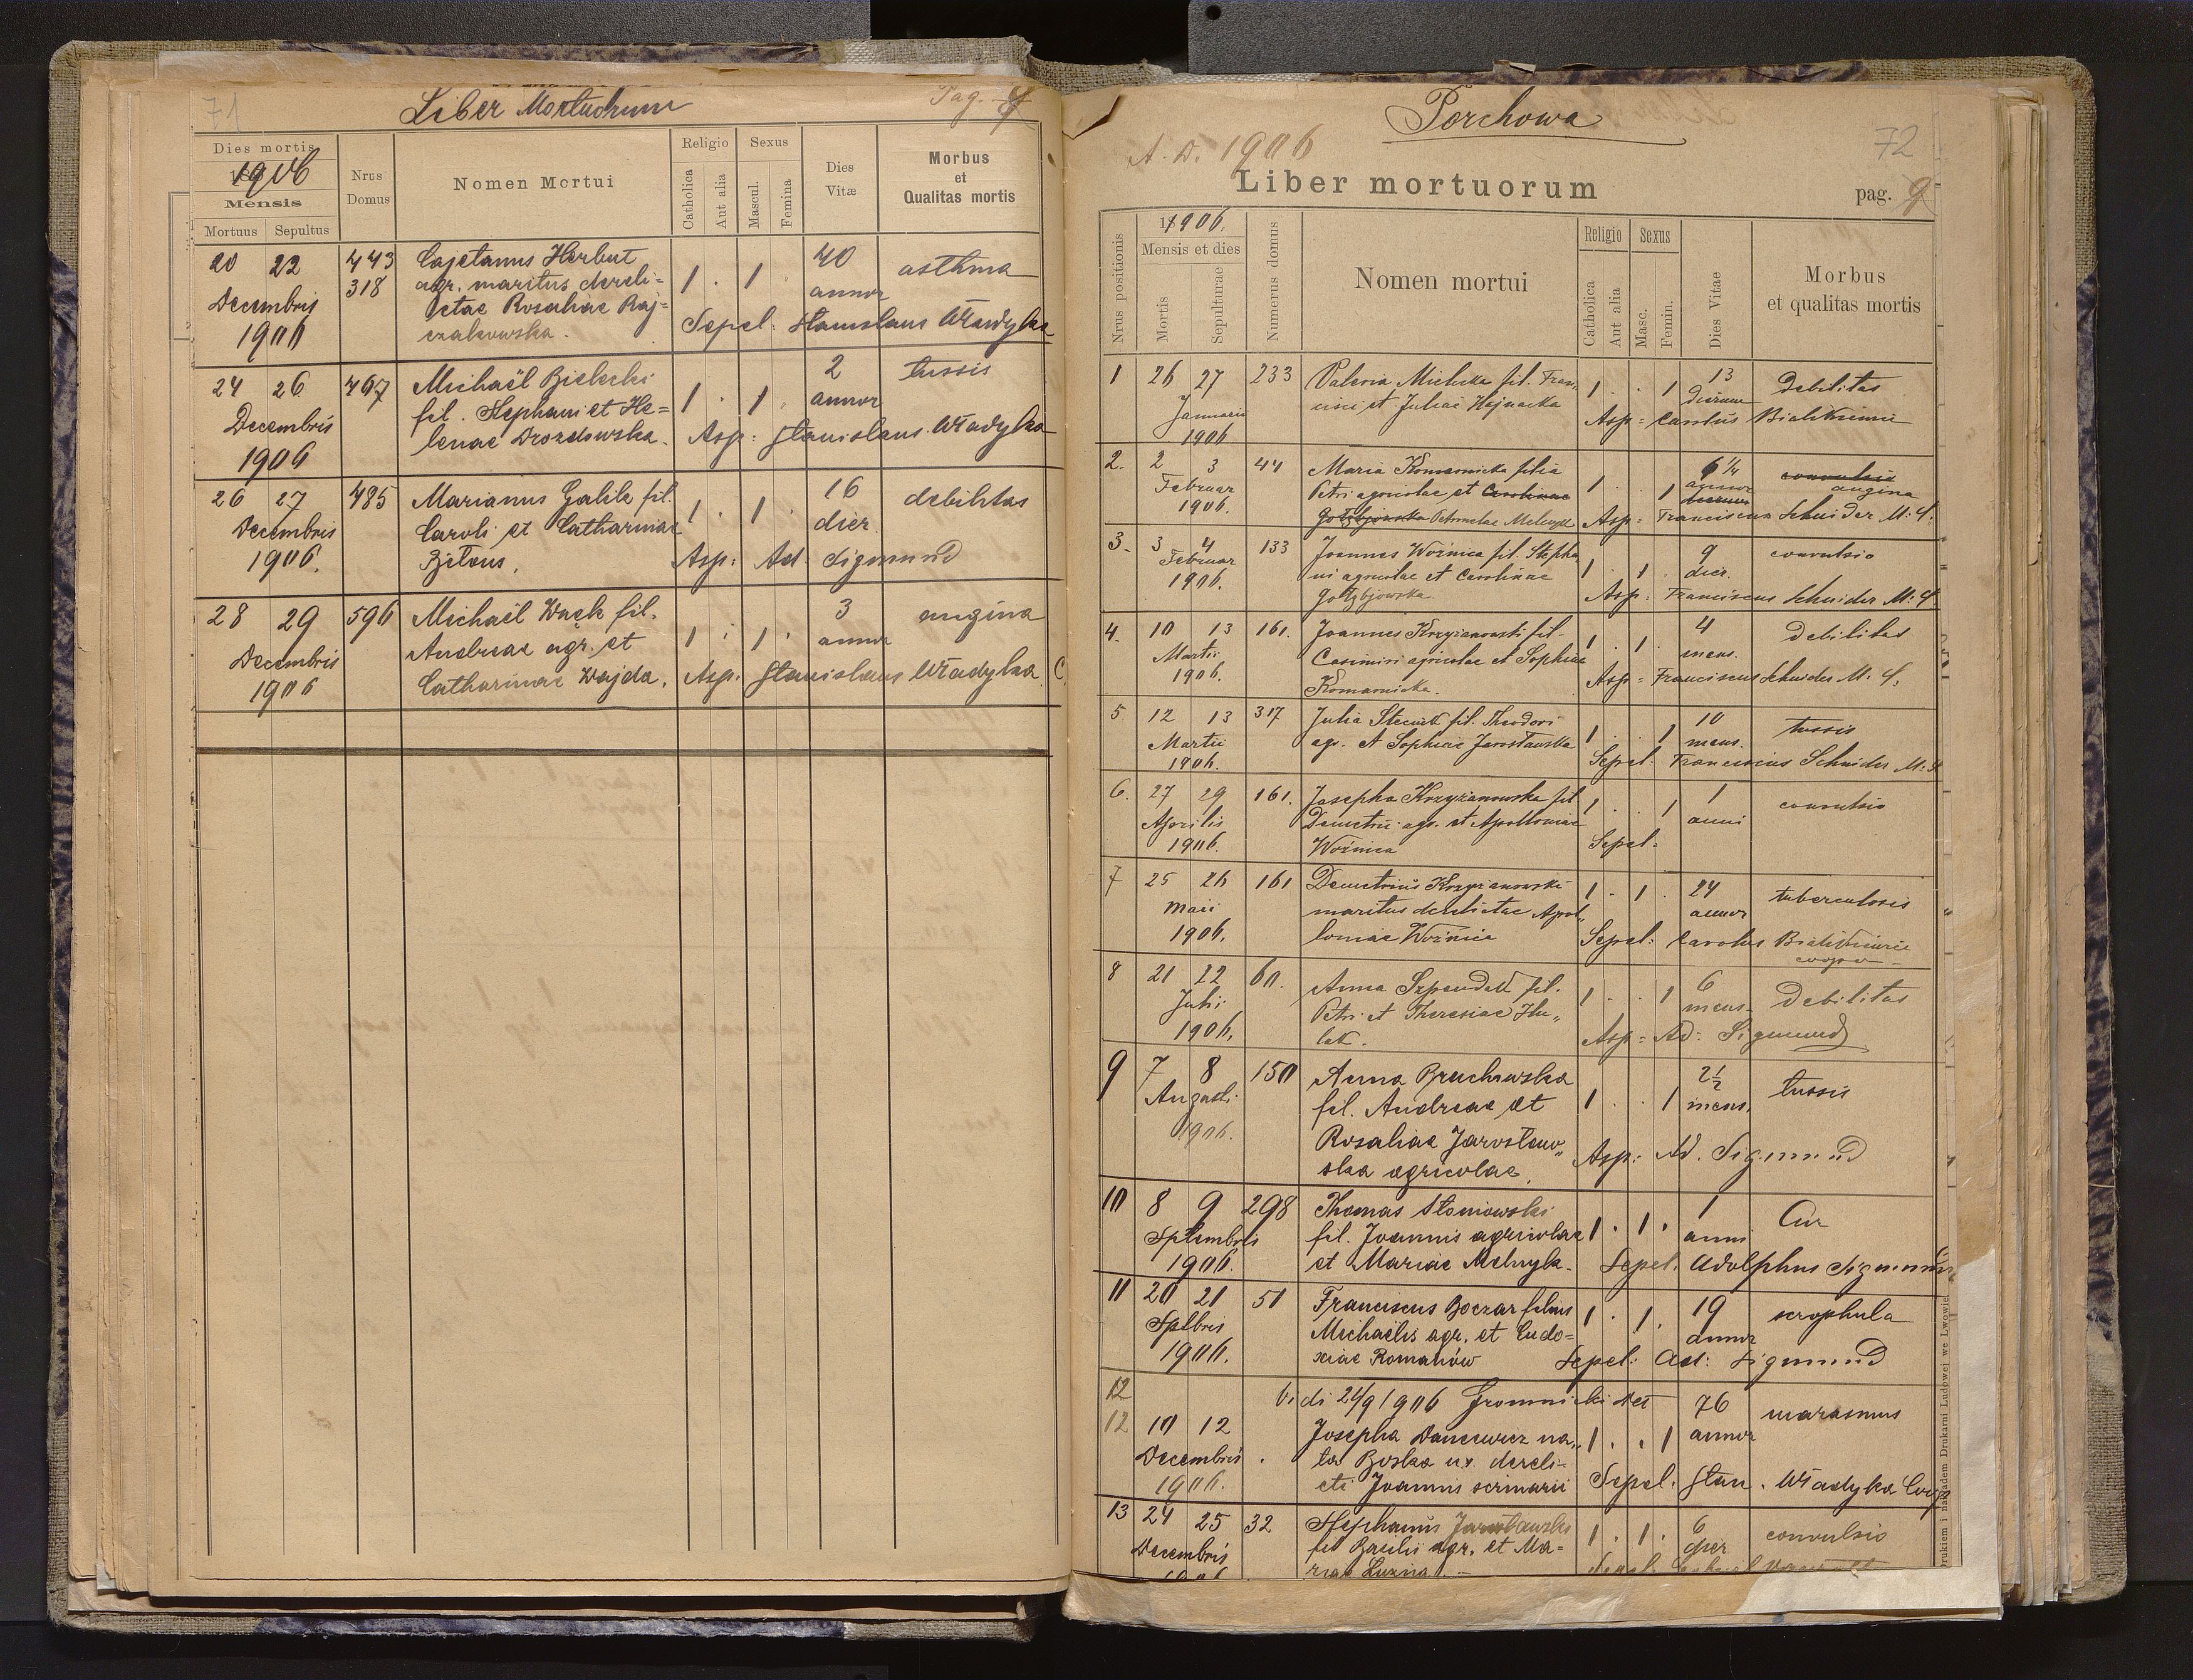 71
Liber Mortuorum
Pag.
Dies mortis
1906
Mensis
Mortuus Sepultus
Nrus Domus
Nomen Mortui
Religio
Catholica
Aut alia
Sexus
Mascul.
Femina
Dies Vitæ
Morbus
et
Qualitas mortis
20 22 443 Cajetanus Herbut 40 asthma
318 agr. maritus dereli= 1 . 1 . annor
Decembris ctae Rosaliae Raj=
1906 czakowska. Sepel. Stanislaus Władyka
24 26 467 Michaël Bielecki 2 tussis
fil. Stephani et He= 1 . 1 annor
Decembris lenae Drozdowska. Asp: Stanislaus Władyka
1906
26 27 485 Marianus Galik fil. 16 debilitas
Decembris Caroli et Catharinae 1 . 1 . dier
1906. Asp: Ad Sigmund
28 29 596 Michaël Wack fil. 3 angina
Decembris Andreae agr. et 1 . 1 . annor
1906 Catharinae Wajda. Asp. Stanislaus Władyka C
Porchowa
A. D. 1906
72
Liber mortuorum
pag. 9
Nrus positionis
1906.
Mensis et dies
Mortis
Sepulturae
Numerus domus
Nomen mortui
Religio
Catholica
Aut alia
Sexus
Masc.
Femin.
Dies Vitae
Morbus
et qualitas mortis
1 26 27 233 Valeria Mielnicka fil. Fran, 1 . . 1 13 debilitas
Januarii cisci et Juliae dierum
1906 Asp: Carolus
2. 2 3 44 Maria Komarnicka filia 6 1/4 convulsio
Februar Petri agricolae et Carolinae 1 . . 1 annor dierum angina
1906. Gołębjowska Petronelae Melnyk Asp: Franciscus Schneider M: S:
3. 3 4 133 Joannes Woźnica fil. Stepha 9 convulsio
Februar ni agricolae et Carolinae 1 . 1 . dier.
1906. Gołębjowska. Asp: Franciscus Schneider M: S.
4. 10 13 161. Joannes Krzyżanowski fil. 1 . 1 . 4 debilitas
Martii Casimiri agricolae et Sophiae mens.
1906. Komarnicka. Asp: Franciscus Schneider M: S.
5 12 13 317 Julia fil. Theodori 10 tussis
Martii agr. et Sophiae Jarosławska 1 . . 1 mens.
1906. Sepel: Franciscus Schneider M: S
6. 27 29 161. Josepha Krzyżanowska fil 1 . . 1 1 convulsio
Aprilis Demetrii agr. et Apolloniae anni
1906. Woźnica Sepel:
7 25 26 161 Demetrius Krzyżanowski 1 . 1 . 24 tuberculosis
Maii maritus derelictae Apol„ annor
1906. loniae Woźnica Sepel: Carolus
cooper
8 21 22 60. Anna fil. 6
Julii Petri et Theresiae Hu„ 1 . . 1 mens. Debilitas
1906. Asp: Ad: Sigmund
9 7 8 150 Anna Bruchowska 2 1/2 tussis
Augusti fil. Andreae et 1 . . 1 mens.
1906. Rosaliae Jarosław„
ska agricolae. Asp: Ad. Sigmund
10 8 9 298 Thomas Słoniowski 1
Septembris fil. Joannis agricolae 1 . 1 . anni
1906. et Mariae Melnyk. Sepel. Adolphus Sigmund
11 20 21 51 Franciscus Boczar filius 1 . 1 . 19 scrophula
Sptbris Michaelis agr. et Eudo= annor
1906. xiae Romanów Sepel: Ad: Sigmund
12 Vidi 24/9 1906 Gromnicki 76 marasmus
12 10 12 Josepha Dancewicz na„ 1 . . 1 annor
Decembris . ta Boska ux. dereli-
1906. cti Joannis scrinarii Sepel. Stan. Władyka Coop
13 24 25 32 Stephanus Jarosławski 1 . 1 . 6 convulsio
Decembris fil Basilii agr. et Ma= dier
1906 riae Luzna
Drukiem i nakładem Drukarni Ludowej we Lwowie.